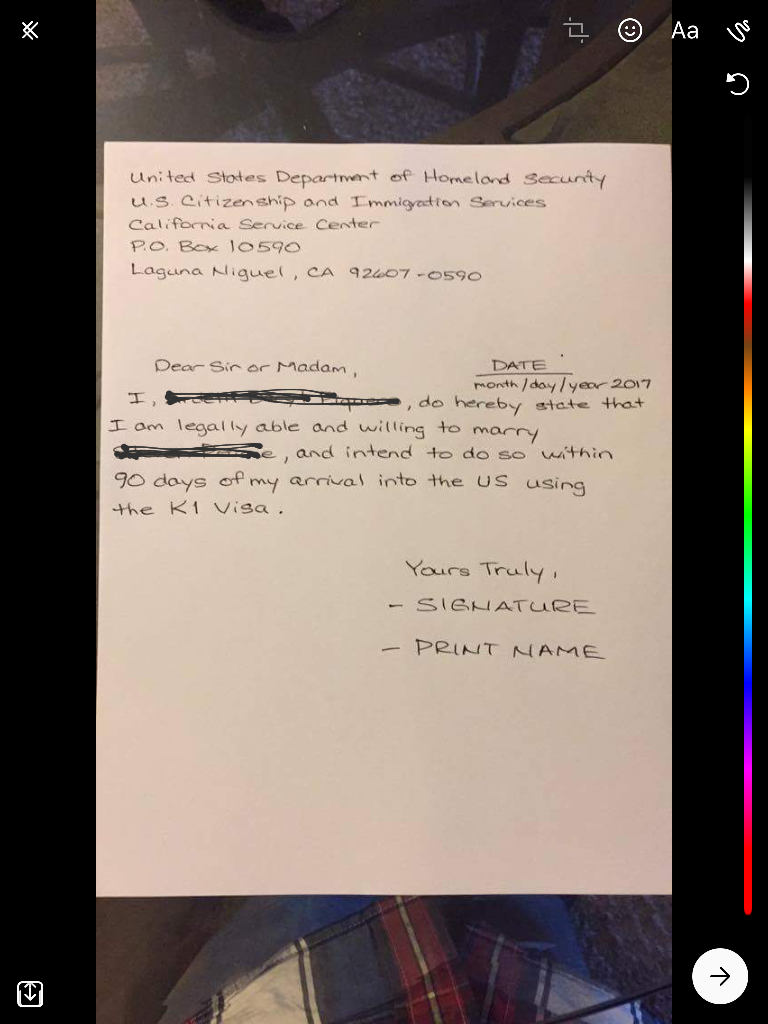 Aa
United States Department of Homeland Security
U.S. Citizenship and Immigration Services
California Service Center
P.O. Box 10590
Laguna Niguel, CA 92607-0590
Dear Sir or Madam,
DATE
month/day/year 2017
I, , do hereby state that
I am legally able and willing to marry
, and intend to do so within
90 days of my arrival into the US using
the K1 Visa.
Yours Truly,
- SIGNATURE
- PRINT NAME